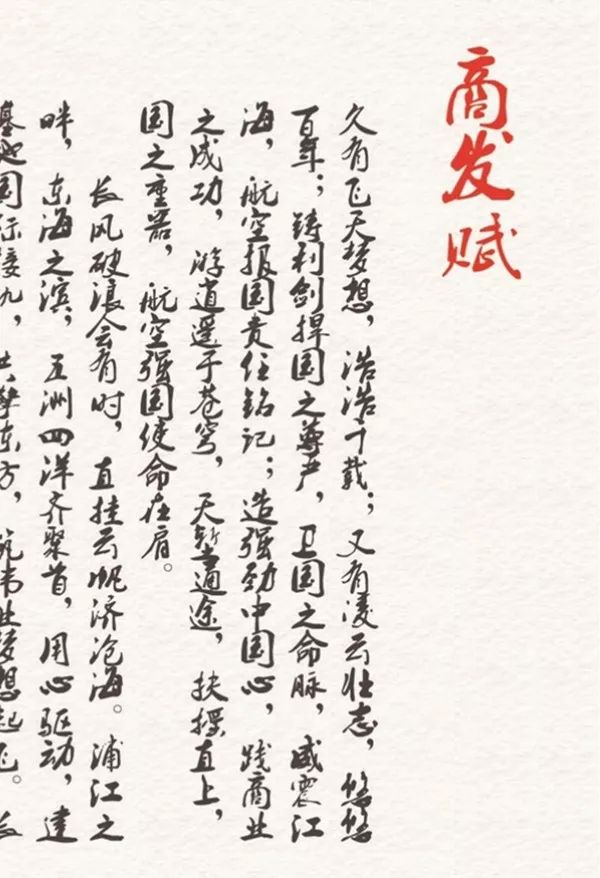 商发赋
久有飞天梦想，浩浩千载；又有凌云壮志，悠悠
百年；铸利剑捍国之尊严，卫国之命脉，威震江
海，航空报国责任铭记；造强劲中国心，践商业
之成功，游逍遥于苍穹，天堑通途，扶摇直上，
国之重器，航空强国使命在肩。
长风破浪会有时，直挂云帆济沧海。浦江之
畔，东海之滨；五洲四洋齐聚首，用心驱动，建
基地国际接轨，共擎东方，筑伟业梦想起飞。长